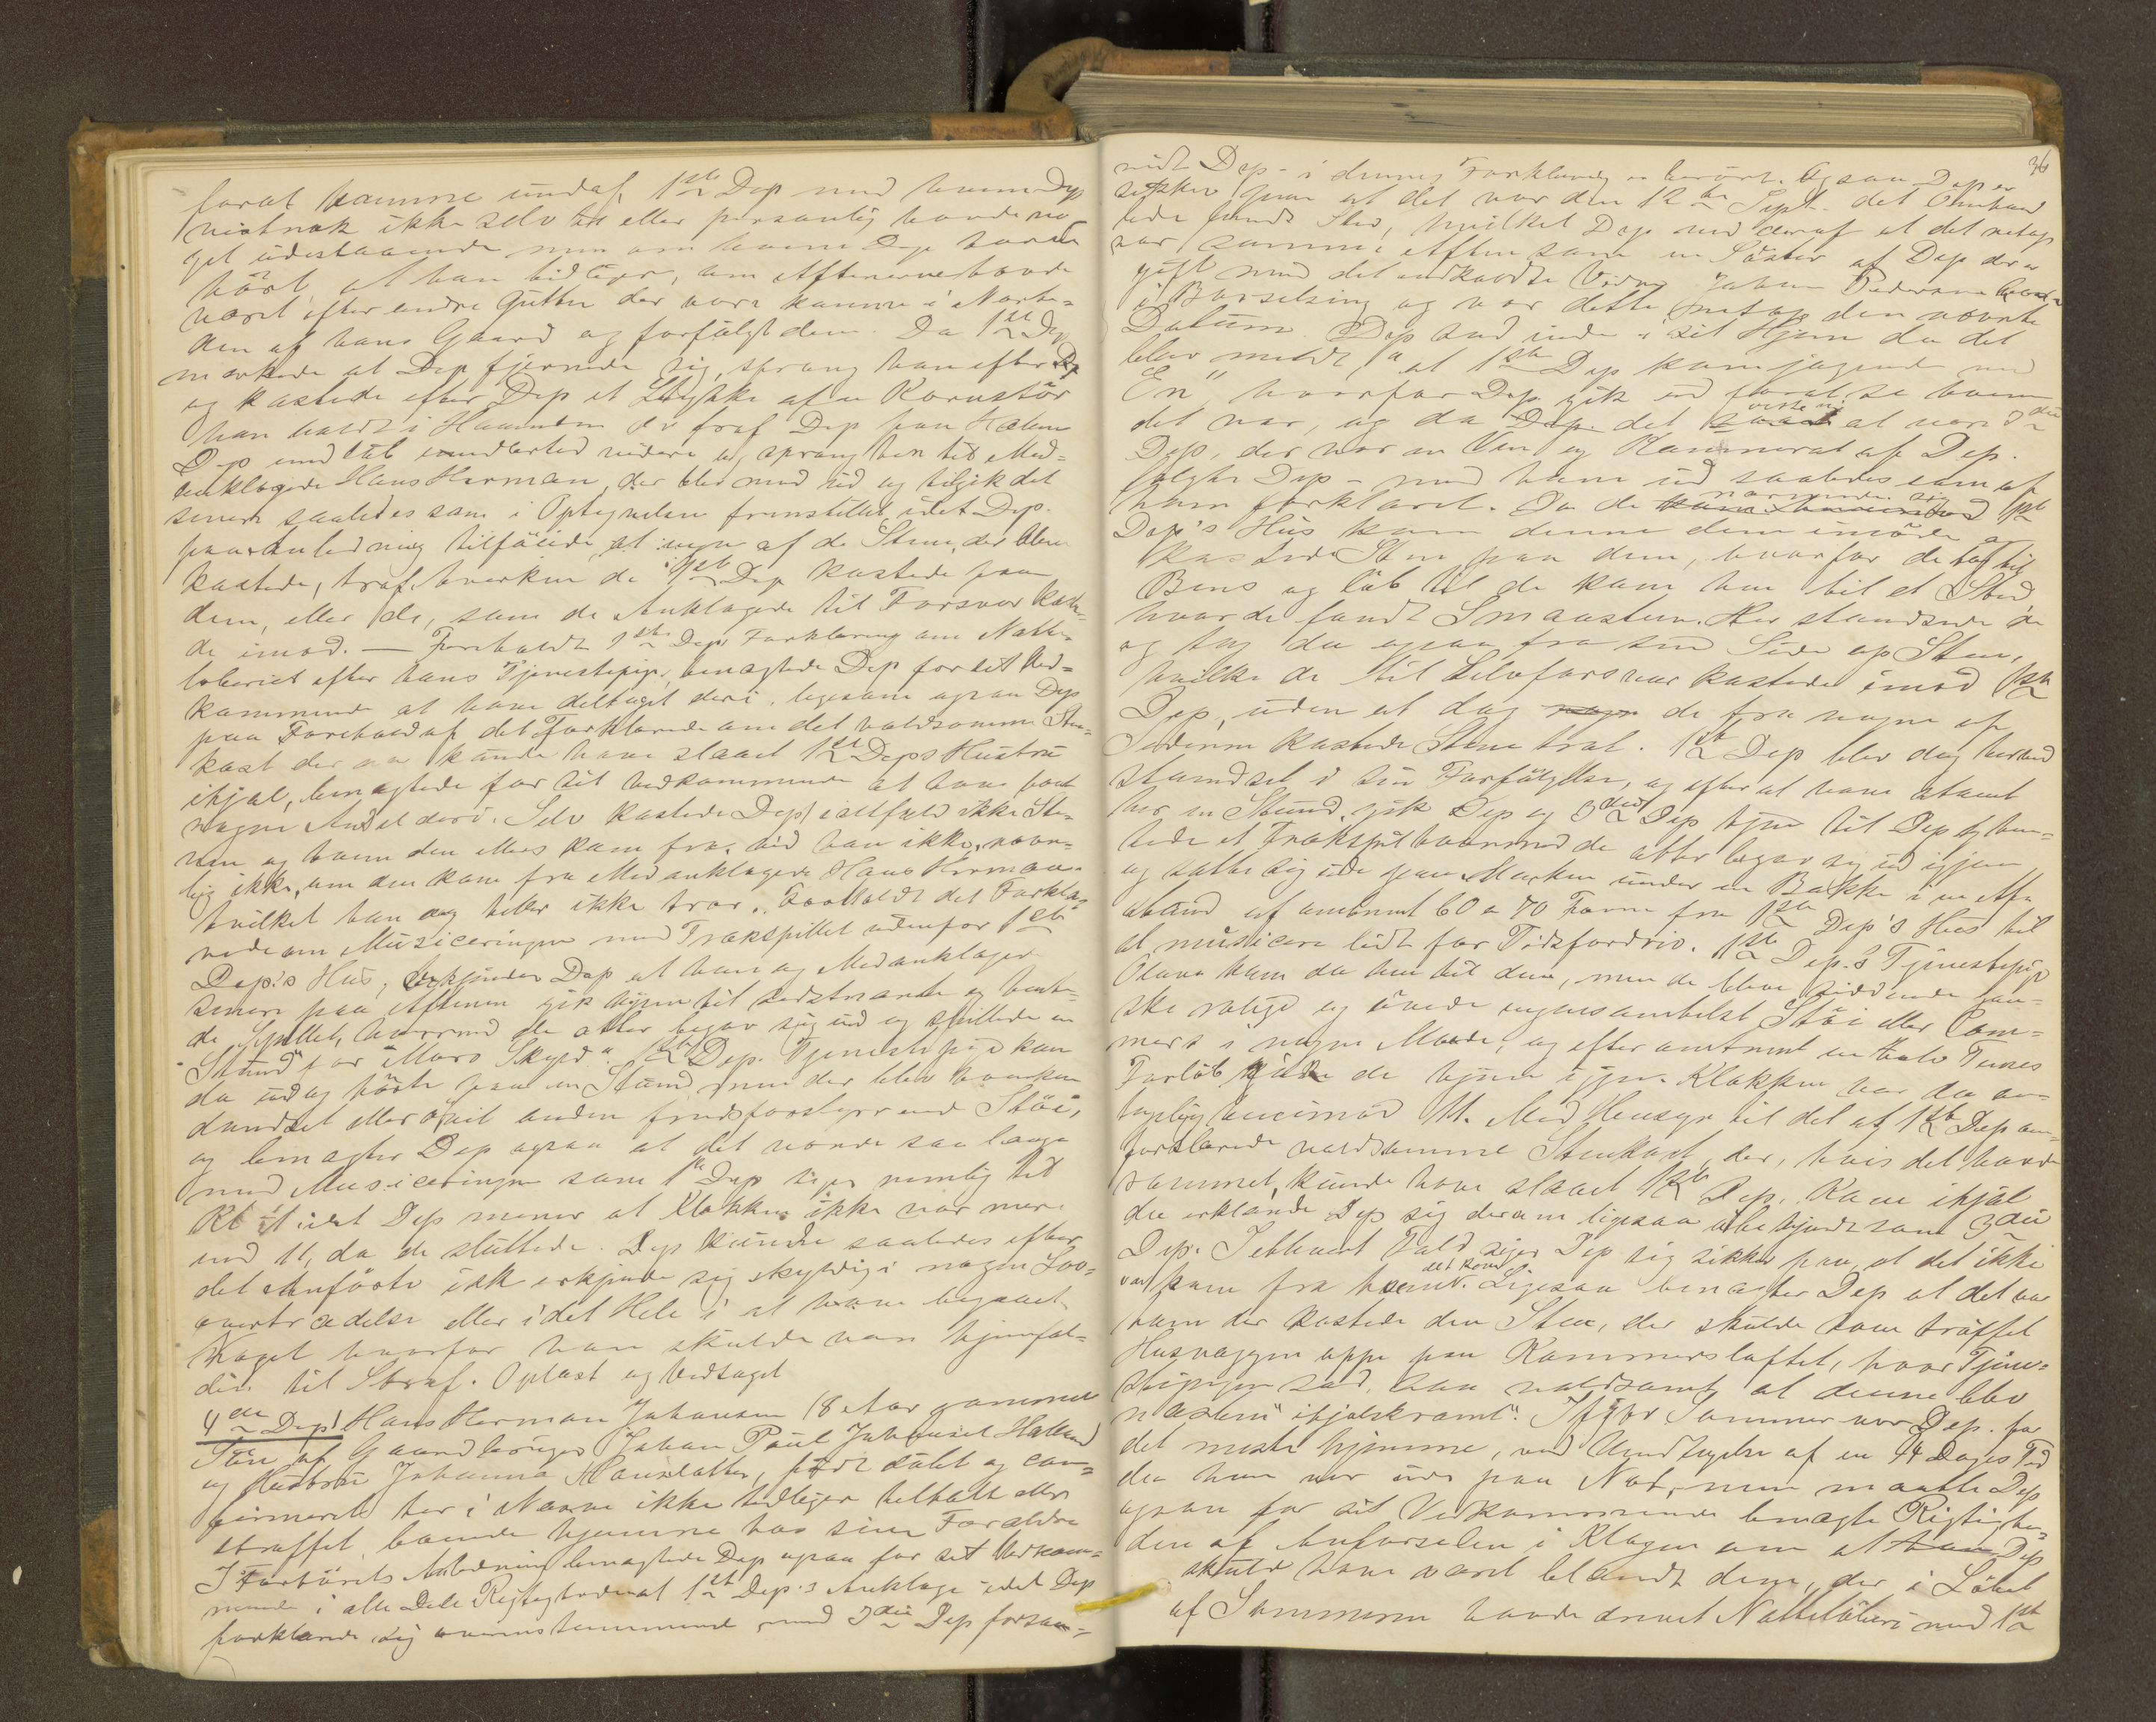 forat komme undaf 1ste Dep med hvem Dep
vistnok ikke selv har eller personlig havde no-
get udestaaende men om hvem Dep havde
hört, at han tidligere, om Aftenerne havde
været efter andre Gutter der vare komne i Nærhe-
den af hans Gaard og forfulgt dem. Da 1ste Dep
mærkede at Dep fjernede sig, sprang han efter Dep
og kastede efter Dep et Stykke af en Kornstör
han holdt i Haanden der traf Dep paa Hælene
Dep undløb imidlertid videre og sprang hen til Med-
anklagede Hans Herman, der blev med ud og tilgik det
senere saaledes som i Optegnelsen fremstillet, idet Dep.
paa Anledning tilföiede, at ingen af de Stene, der blev
kastede, traf, hverken de 1ste Dep kastede paa
dem, eller de, som de Anklagede til Forsvar kaste-
de imod. — Foreholdt 1ste Deps Forklaring om Natte-
löberiet efter hans Tjenestepige, benægtede Dep for sit Ved-
kommende at have deltaget deri, ligesom ogsaa Dep
paa Forehold af det Forklarede om det voldsomme Sten-
kast der kunde have slaaet 1ste Deps Hustru
ihjel, benægtede for sit Vedkommende at have havt
nogen Andel deri. Selv kastede Dep ialfald ikke Ste-
nen og hvem den ellers kom fra, ved han ikke, navn-
lig ikke, om den kom fra Medanklagede Hans Herman
hvilket han dog heller ikke tror. Foreholdt det Forkla-
rede om Musiceringen med Trækspillet udenfor 1ste
Dep's Hus, erkjender Dep at han og Medanklagede
senere paa Aftenen gik hjem til sidstnævnte og hente-
de Spillet, hvormed de atter begav sig ud og spillede en
Stund "for Moro Skyld". 1ste Dep. Tjenestepige kom
da ud og hörte paa en Stund, men der blev hverken
dandset eller övet anden fredsforstyrrende Stöi,
og benægter Dep ogsaa at det varede saa længe
med Musiceringen som 1ste Dep siger nemlig til
Kl idet Dep mener at Klokken ikke var mere
end 11, da de sluttede. Dep kunde saaledes efter
det Anförte ikke erkjende sig skyldig i nogen Lov-
overtrædelse eller i det Hele i at have begaaet
Noget hvorfor han skulde være hjemfal-
den til Straf. Oplæst og Vedtaget
4de Dep: Hans Herman Johansen 18 Aar gammel
Sön af Gaardbruger Johan Paul Johansen
og Hustru Johanna Hansdatter, födt döbt og con-
firmeret her i ikke tidligere tiltalt eller
straffet, boende hjemme hos sine Forældre
I Forhörets Anledning benægtede Dep ogsaa for sit Vedkom-
mende i alle Dele Rigtigheden af 1ste Dep.s Anklage idet Dep
forklarede sig overensstemmende med 3die Dep forsaa-
36
vidt Dep. i dennes Forklaring er berört. Ogsaa Dep er
sikker paa at det var den 12te Sept. det Omhand-
lede fandt Sted, hvilket Dep ved deraf at det netop
var samme Aften som en Söster af Dep der er
gift med det indkaldte Vidne Johan Pedersen kom
i Barselseng og var dette netop den nævnte
Datum. Dep sad inde i sit Hjem da det
blev meldt, "at 1ste Dep kom jagende med
En" hvorfor Dep gik ud forat se hvem
det var, og da det viste sig at være 3die
Dep, der var en Ven og Kammerat af Dep.
fulgte Dep med ham ud saaledes som af
ham forklaret. Da de nærmede sig 1ste
Dep's Hus kom denne dem imöde og
kastede Sten paa dem, hvorfor de tog til
Bens og löb til de kom hen til et Sted,
hvor de fandt Smaasten. Her standsede de
og tog da ogsaa fra sin Side op Sten,
hvilke de til Selvforsvar kastede imod 1ste
Dep, uden at dog de fra nogen af
Siderne kastede Stene traf. 1ste Dep blev dog herved
standset i sin Forfölgelse, og efter at have staaet
her en Stund, gik Dep og 3die Dep hjem til Dep og hen-
tede et Trækspil hvormed de atter begav sig ud igjen
og satte sig ude paa Marken under en Bakke i en Af-
stand af omtrent 60 a 70 Favne fra 1ste Dep's Hus til
at musicere lidt for Tidsfordriv. 1ste Dep.s Tjenestepige
Olava kom da hen til dem, men de bleve siddende gan-
ske rolige og övede ingensomhelst Stöi eller Com-
mers i nogen Maade, og efter omtrent en halv Times
Forlöb gik de hjem igjen. Klokken var da an-
tagelig henimod 11. Med Hensyn til det af 1ste Dep om-
forklarede voldsomme Stenkast, der, hvis det havde
rammet, kunde have slaaet 1ste Dep. Kone ihjel
da erklærede Dep sig derom ligesaa ubekjendt som 3die
Dep. I ethvert Fald siger Dep sig sikker paa, at det ikke
var ham det kom fra. Ligesaa benægter Dep at det var
ham der kastede den Sten, der skulde have truffet
Husvæggen oppe paa Kammersloftet, hvor Tjene-
stepigen sad, saa voldsomt, at denne blev
næsten "ihjelskræmt". Ifjor Sommer var Dep. for
det meste hjemme, med Undtagelse af en 14 Dages Tid
da han var ude paa Not, men maatte Dep
ogsaa for sit Vedkommende benægte Rigtighe-
den af Anförselen i Klagen om at Dep
skulde have været blandt dem, der i Löbet
af Sommeren havde drevet Nattelöberi med 1ste